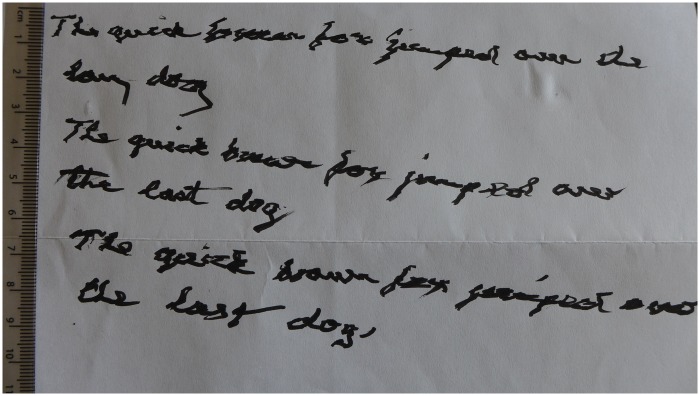 The quick brown fox jumped over the
lazy dog
The quick brown fox jumped over
the last dog
The quick brown fox jumped over
the last dog,
cm
1
2
3
4
5
6
7
8
9
10